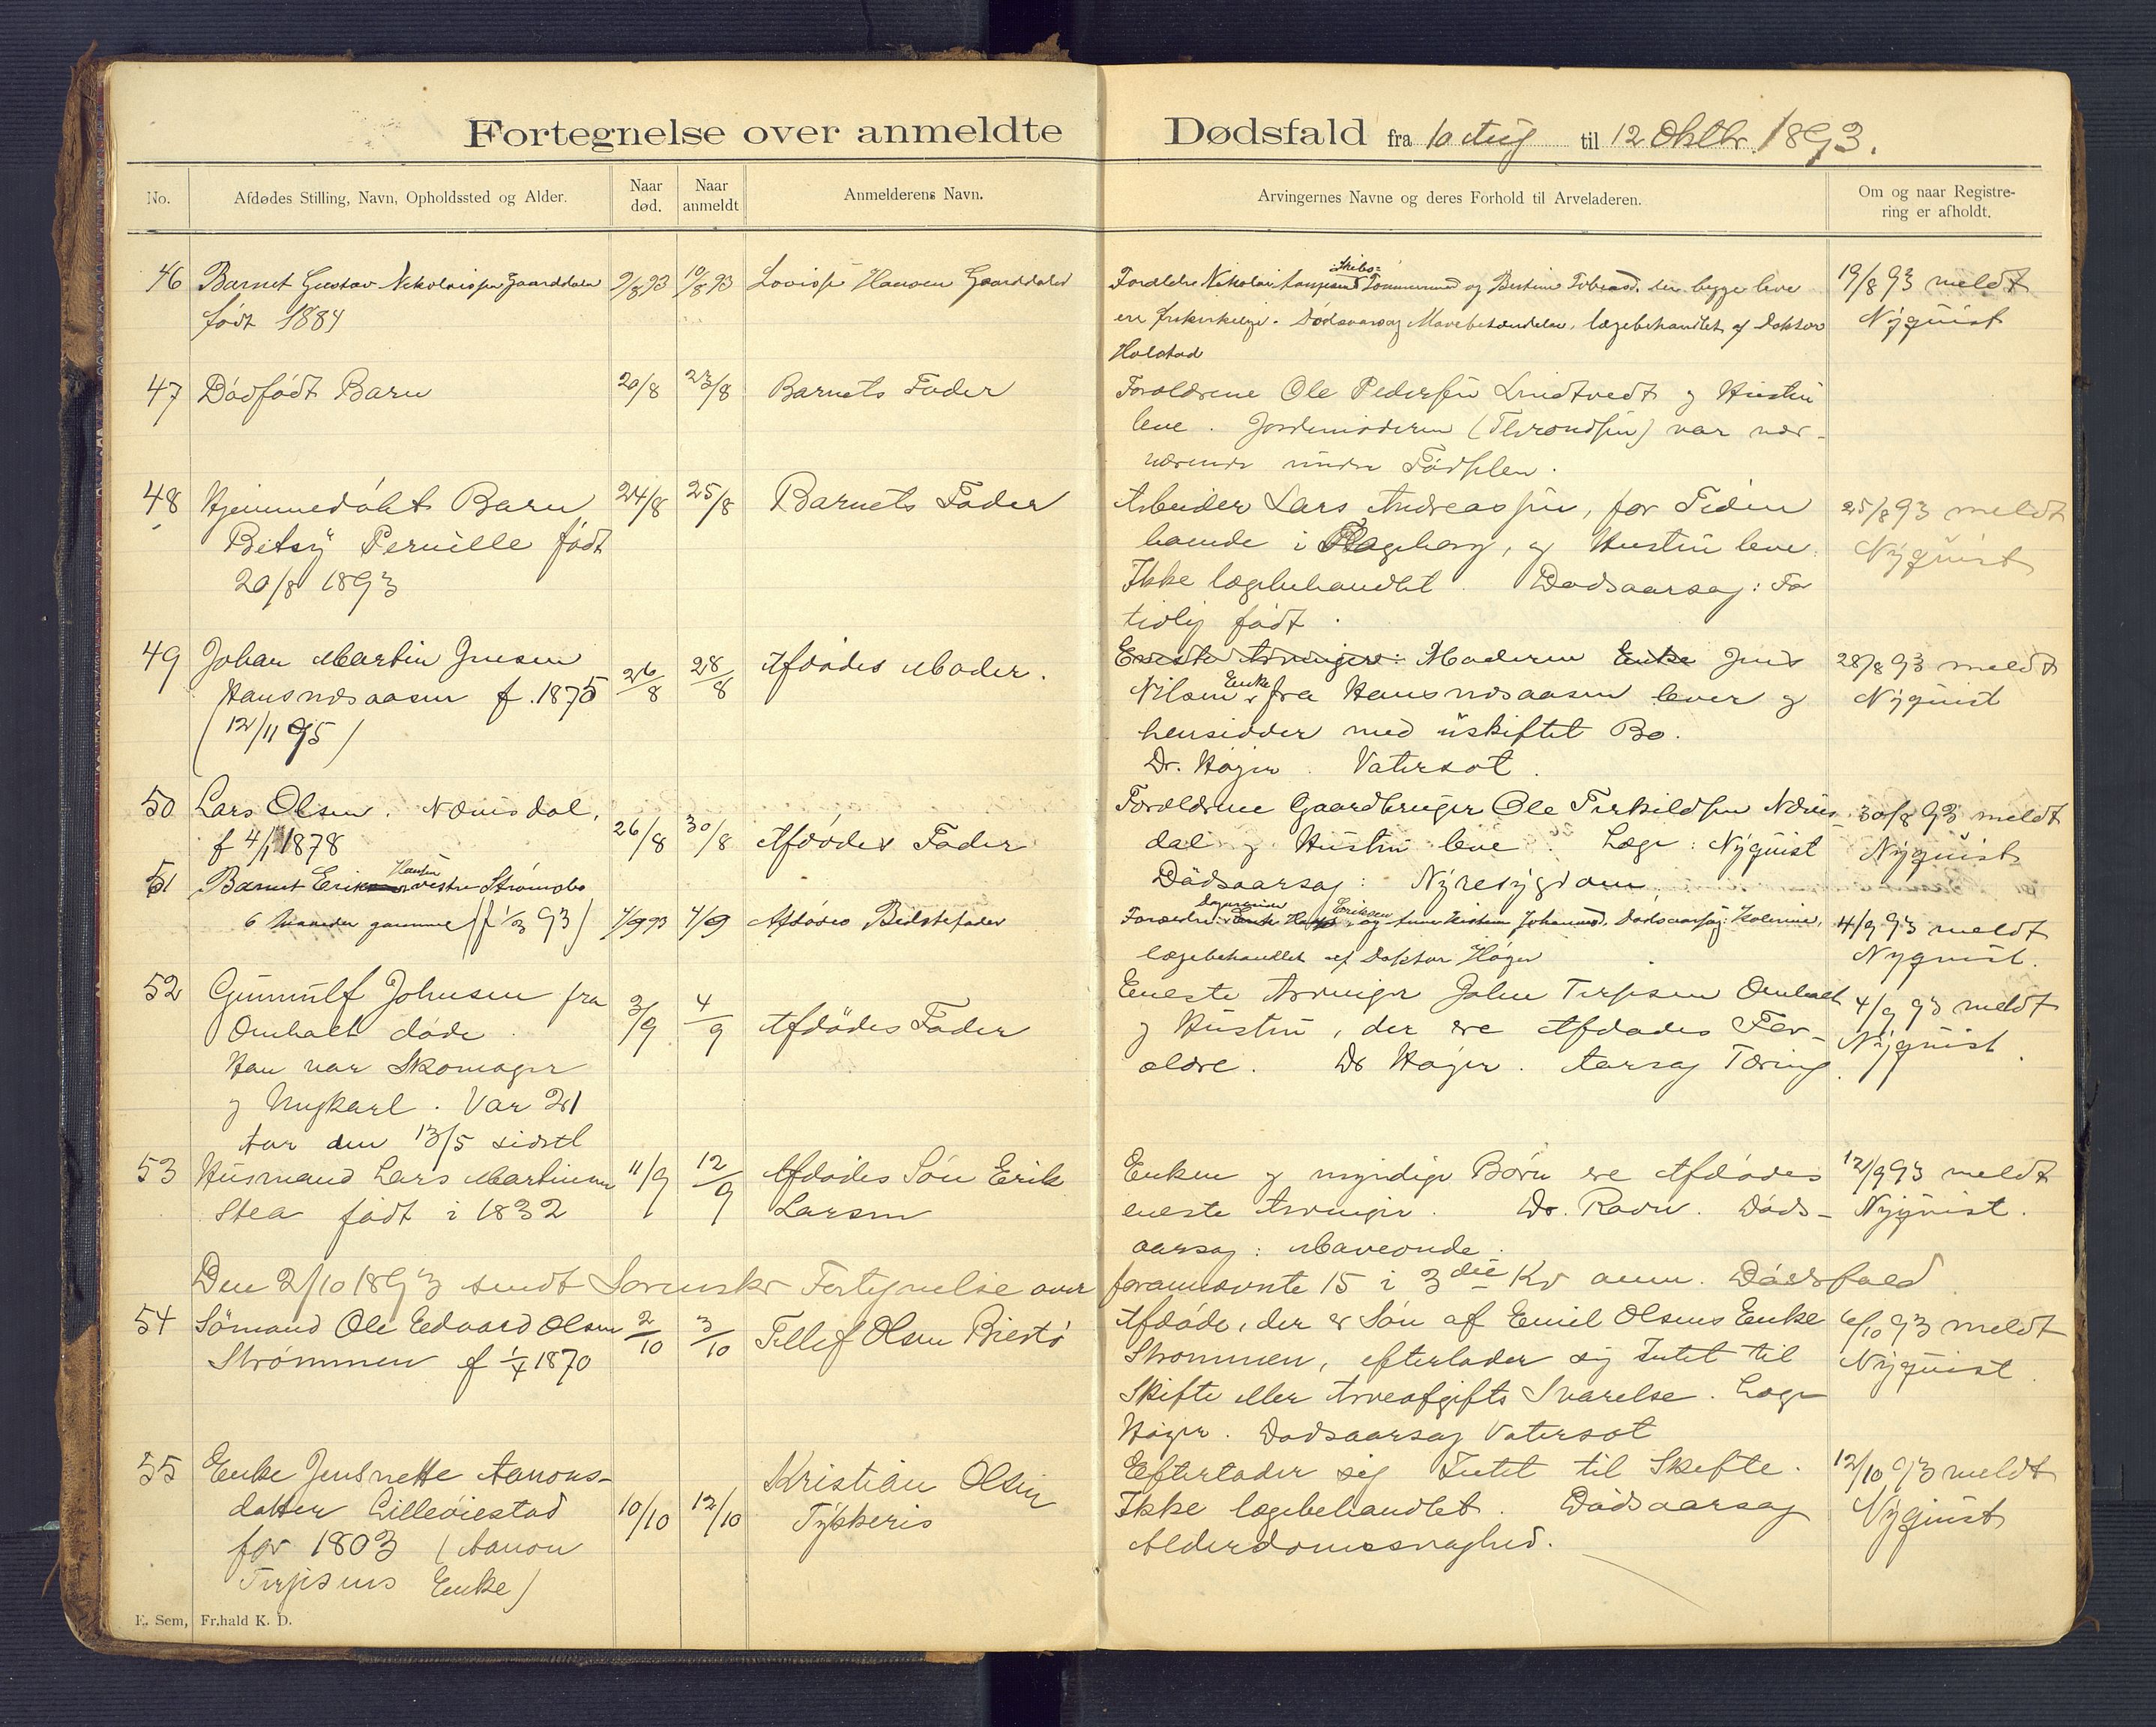 Fortegnelse over anmeldte Dødsfald fra 10 Aug til 12 Oktbr. 1893.
No. Afdødes Stilling, Navn, Opholdssted og Alder. Naar død. Naar anmeldt Anmelderens Navn. Arvingernes Navne og deres Forhold til Arveladeren. Om og naar Registrering er afholdt.
46 Barnet Gustav Nikolaissen Gaarddalen 9/8 93 10/8 93 Lovise Hansen Gaarddalen
født 1884
Forældre Nikolai Skibs= Tømmermand og der begge leve
ere frikirkelige. Dødsaarsag Mavebetændelse, lægebehandlet af Doktor
Holstad
19/8 93 meldt
Nyquist
47 Dødfødt Barn 20/8 23/8 Barnets Fader
Forældrene Ole Pedersen Lindtvedt og Hustru
leve. Jordemoderen (Throndsen) var nær-
værende under Fødselen.
48 Hjemmedøbt Barn 24/8 25/8 Barnets Fader
Betsy Pernille født
20/8 1893
Arbeider Lars Andreassen, for Tiden
boende i Rageberg, og Hustru leve.
Ikke lægebehandlet. Dødsaarsag: For
tidlig født.
25/8 93 meldt
Nyquist
49 Johan Martin Jensen 26/8 28/8 Afdødes Moder.
Hansnæsaasen f. 1875
(12/11 95)
Eneste Arvinger: Moderen Enke Jens
Nilsen Enke fra Hansnæsaasen lever og
hensidder med uskiftet Bo.
Dr. Høyer. Vatersot.
28/8 93 meldt
Nyquist
50 Lars Olsen. Næmsdal. 26/8 30/8 Afdødes Fader
f 4/1 1878
Forældrene Gaardbruger Ole Terkildsen Næms-
dal og Hustru leve. Læge: Nyquist
Dødsaarsag: Nyresygdom.
30/8 93 meldt
Nyquist
51 Barnet Erik Hansen vestre Strømsbo
6 Maaneder gammel (f 1/3 93) 4/9 93 4/9 Afdødes Bedstefader
Forældre: Enke Hans Eriksen og Johannesd. Dødsaarsag: Kolerine,
lægebehandlet af Doktor Høyer
4/9 93 meldt
Nyquist.
52 Gunnulf Johnsen fra 3/9 4/9 Afdødes Fader
Omholt døde.
Han var Skomager
og Ungkarl. Var 21
Aar den 13/5 sidstl
Eneste Arvinger John Terjesen Omholt
og Hustru, der ere Afdødes For-
ældre. Dr Høyer. Aarsag Tæring.
4/9 93 meldt
Nyquist.
53 Husmand Lars Martinsen 11/9 12/9 Afdødes Søn Erik
Stea født i 1832 Larsen
Enken og myndige Børn ere Afdødes
eneste Arvinger. Dr. Ravn. Døds-
aarsag: Maveonde.
12/9 93 meldt
Nyquist.
Den 2/10 1893 sendt Sorenskr Fortegnelse over forannævnte 15 i 3die Kv anm. Dødsfald
54 Sømand Ole Edvard Olsen 2/10 3/10 Tellef Olsen Biestø
Strømmen f 1/4 1870
Afdøde, der er Søn af Emil Olsens Enke
Strømmen, efterlader sig Intet til
Skifte eller Arveafgifts Svarelse. Læge
Høyer. Dødsaarsag Vatersot
6/10 93 meldt
Nyquist.
55 Enke Jensnette Aanons- 10/10 12/10 Kristian Olsen
datter Lilleøiestad Tykkeris
før 1803 (Aanon
Terjesens Enke)
Efterlader sig Intet til Skifte.
Ikke lægebehandlet. Dødsaarsag
Alderdomssvaghed.
12/10 93 meldt
Nyquist
E. Sem, Fr.hald K. D.